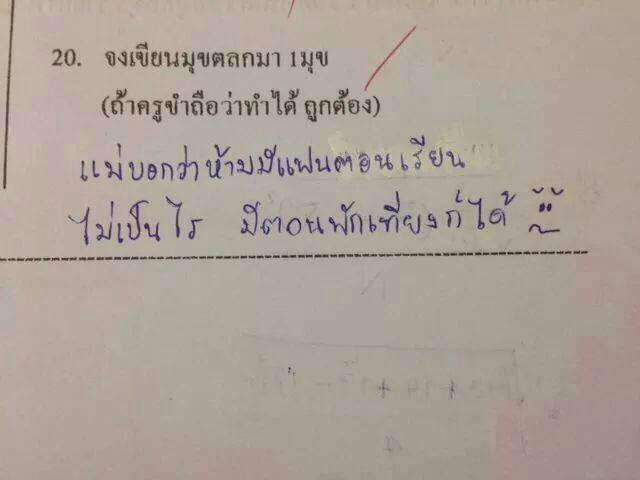 20. จงเขียนมุขตลกมา 1มุข
(ถ้าครูขำถือว่าทำได้ ถูกต้อง)
แม่บอกว่าห้ามมีแฟนตอนเรียน
ไม่เป็นไร มีตอนพักเที่ยงก็ได้